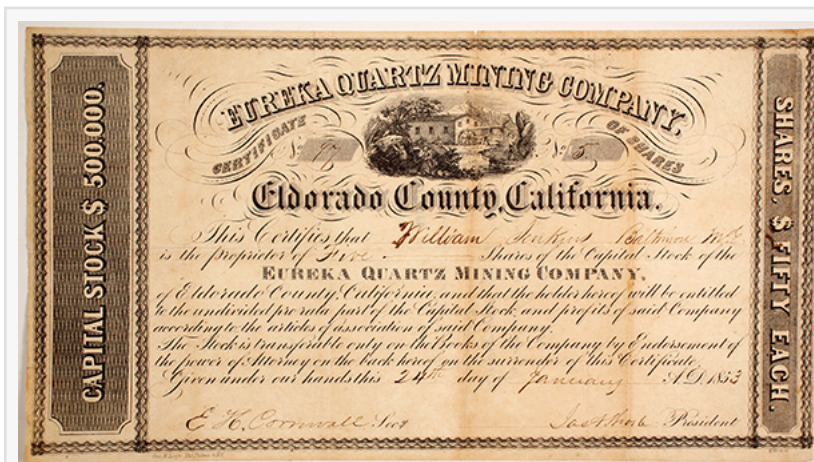 CAPITAL STOCK $ 500.000.
EUREKA QUARTZ MINING COMPANY,
CERTIFICATE OF SHARES
No No 5
Eldorado County, California.
This Certifies that William Jenkins Baltimore Md
is the proprietor of Five Shares of the Capital Stock of the
EUREKA QUARTZ MINING COMPANY,
of Eldorado County, California, and that the holder hereof will be entitled
to the undivided pro rata part of the Capital Stock and profits of said Company
according to the articles of association of said Company.
The Stock is transferable only on the Books of the Company by Endorsement of
the power of Attorney on the back hereof on the surrender of this Certificate.
Given under our hands this 24th day of January A.D. 1853
E. H. Cornwall Secy President
SHARES, $ FIFTY EACH.